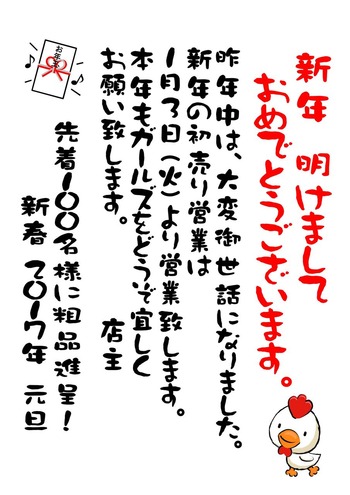 新年 明けまして
おめでとうございます。
昨年中は、大変御世話になりました。
新年の初売り営業は
1月3日(火)より営業致します。
本年もガールズをどうぞ宜しく
お願い致します。
店主
先着100名様に粗品進呈!
新春 2017年 元旦
お年玉